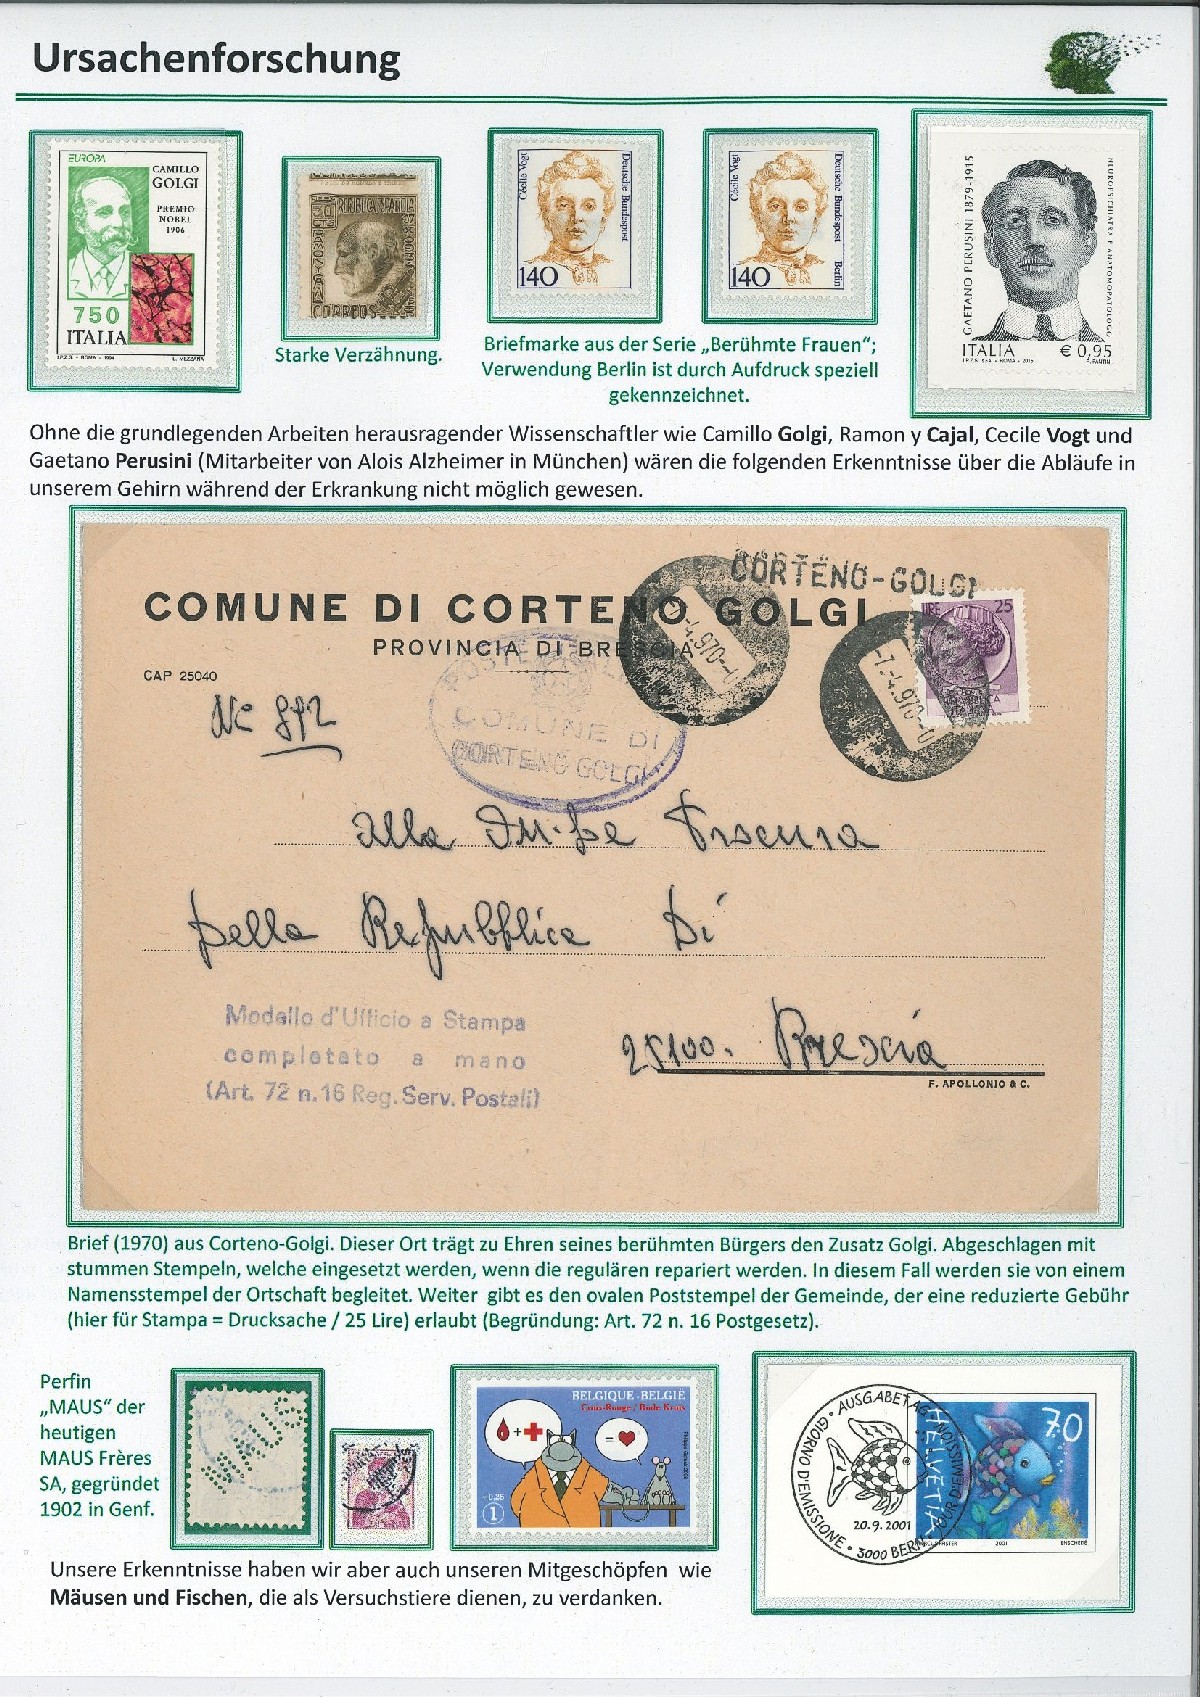 Ursachenforschung
EUROPA
CAMILLO
GOLGI
PREMIO
NOBEL
1906
750
ITALIA
I.P.Z.S. - ROMA - 1994
CORREOS
Starke Verzähnung.
Cécile Vogt
Deutsche Bundespost
140
Cécile Vogt
Deutsche Bundespost
Berlin
140
Briefmarke aus der Serie „Berühmte Frauen“;
Verwendung Berlin ist durch Aufdruck speziell
gekennzeichnet.
GAETANO PERUSINI 1879-1915
NEUROPSICHIATRA E ANATOMOPATOLOGO
ITALIA € 0,95
Ohne die grundlegenden Arbeiten herausragender Wissenschaftler wie Camillo Golgi, Ramon y Cajal, Cecile Vogt und
Gaetano Perusini (Mitarbeiter von Alois Alzheimer in München) wären die folgenden Erkenntnisse über die Abläufe in
unserem Gehirn während der Erkrankung nicht möglich gewesen.
CORTENO-GOLGI
COMUNE DI CORTENO GOLGI
PROVINCIA DI BRESCIA
CAP 25040
LIRE 25
-7-4.970-
COMUNE DI
CORTENO GOLGI
Alla
della Repubblica di
25100. Brescia
Modello d'Ufficio a Stampa
completato a mano
(Art. 72 n.16 Reg. Serv. Postali)
F. APOLLONIO & C.
Brief (1970) aus Corteno-Golgi. Dieser Ort trägt zu Ehren seines berühmten Bürgers den Zusatz Golgi. Abgeschlagen mit
stummen Stempeln, welche eingesetzt werden, wenn die regulären repariert werden. In diesem Fall werden sie von einem
Namensstempel der Ortschaft begleitet. Weiter gibt es den ovalen Poststempel der Gemeinde, der eine reduzierte Gebühr
(hier für Stampa = Drucksache / 25 Lire) erlaubt (Begründung: Art. 72 n. 16 Postgesetz).
Perfin
„MAUS“ der
heutigen
MAUS Frères
SA, gegründet
1902 in Genf.
BELGIQUE-BELGIË
Croix-Rouge / Rode Kruis
1
AUSGABETAG
GIORNO D'EMISSIONE
20.9.2001
3000 BERN
HELVETIA
70
2001
ENSCHEDE
Unsere Erkenntnisse haben wir aber auch unseren Mitgeschöpfen wie
Mäusen und Fischen, die als Versuchstiere dienen, zu verdanken.